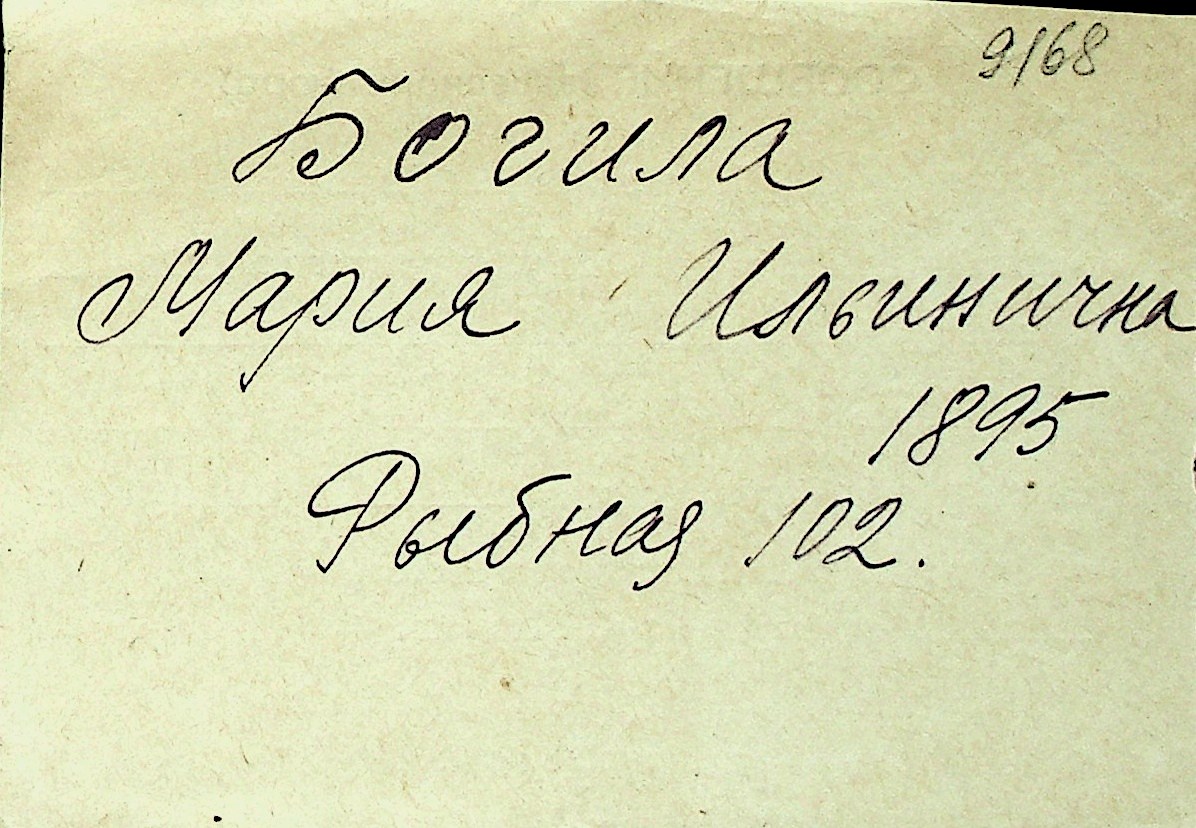 9168
Богила
Мария Ильинична
1895
Рыбная 102.